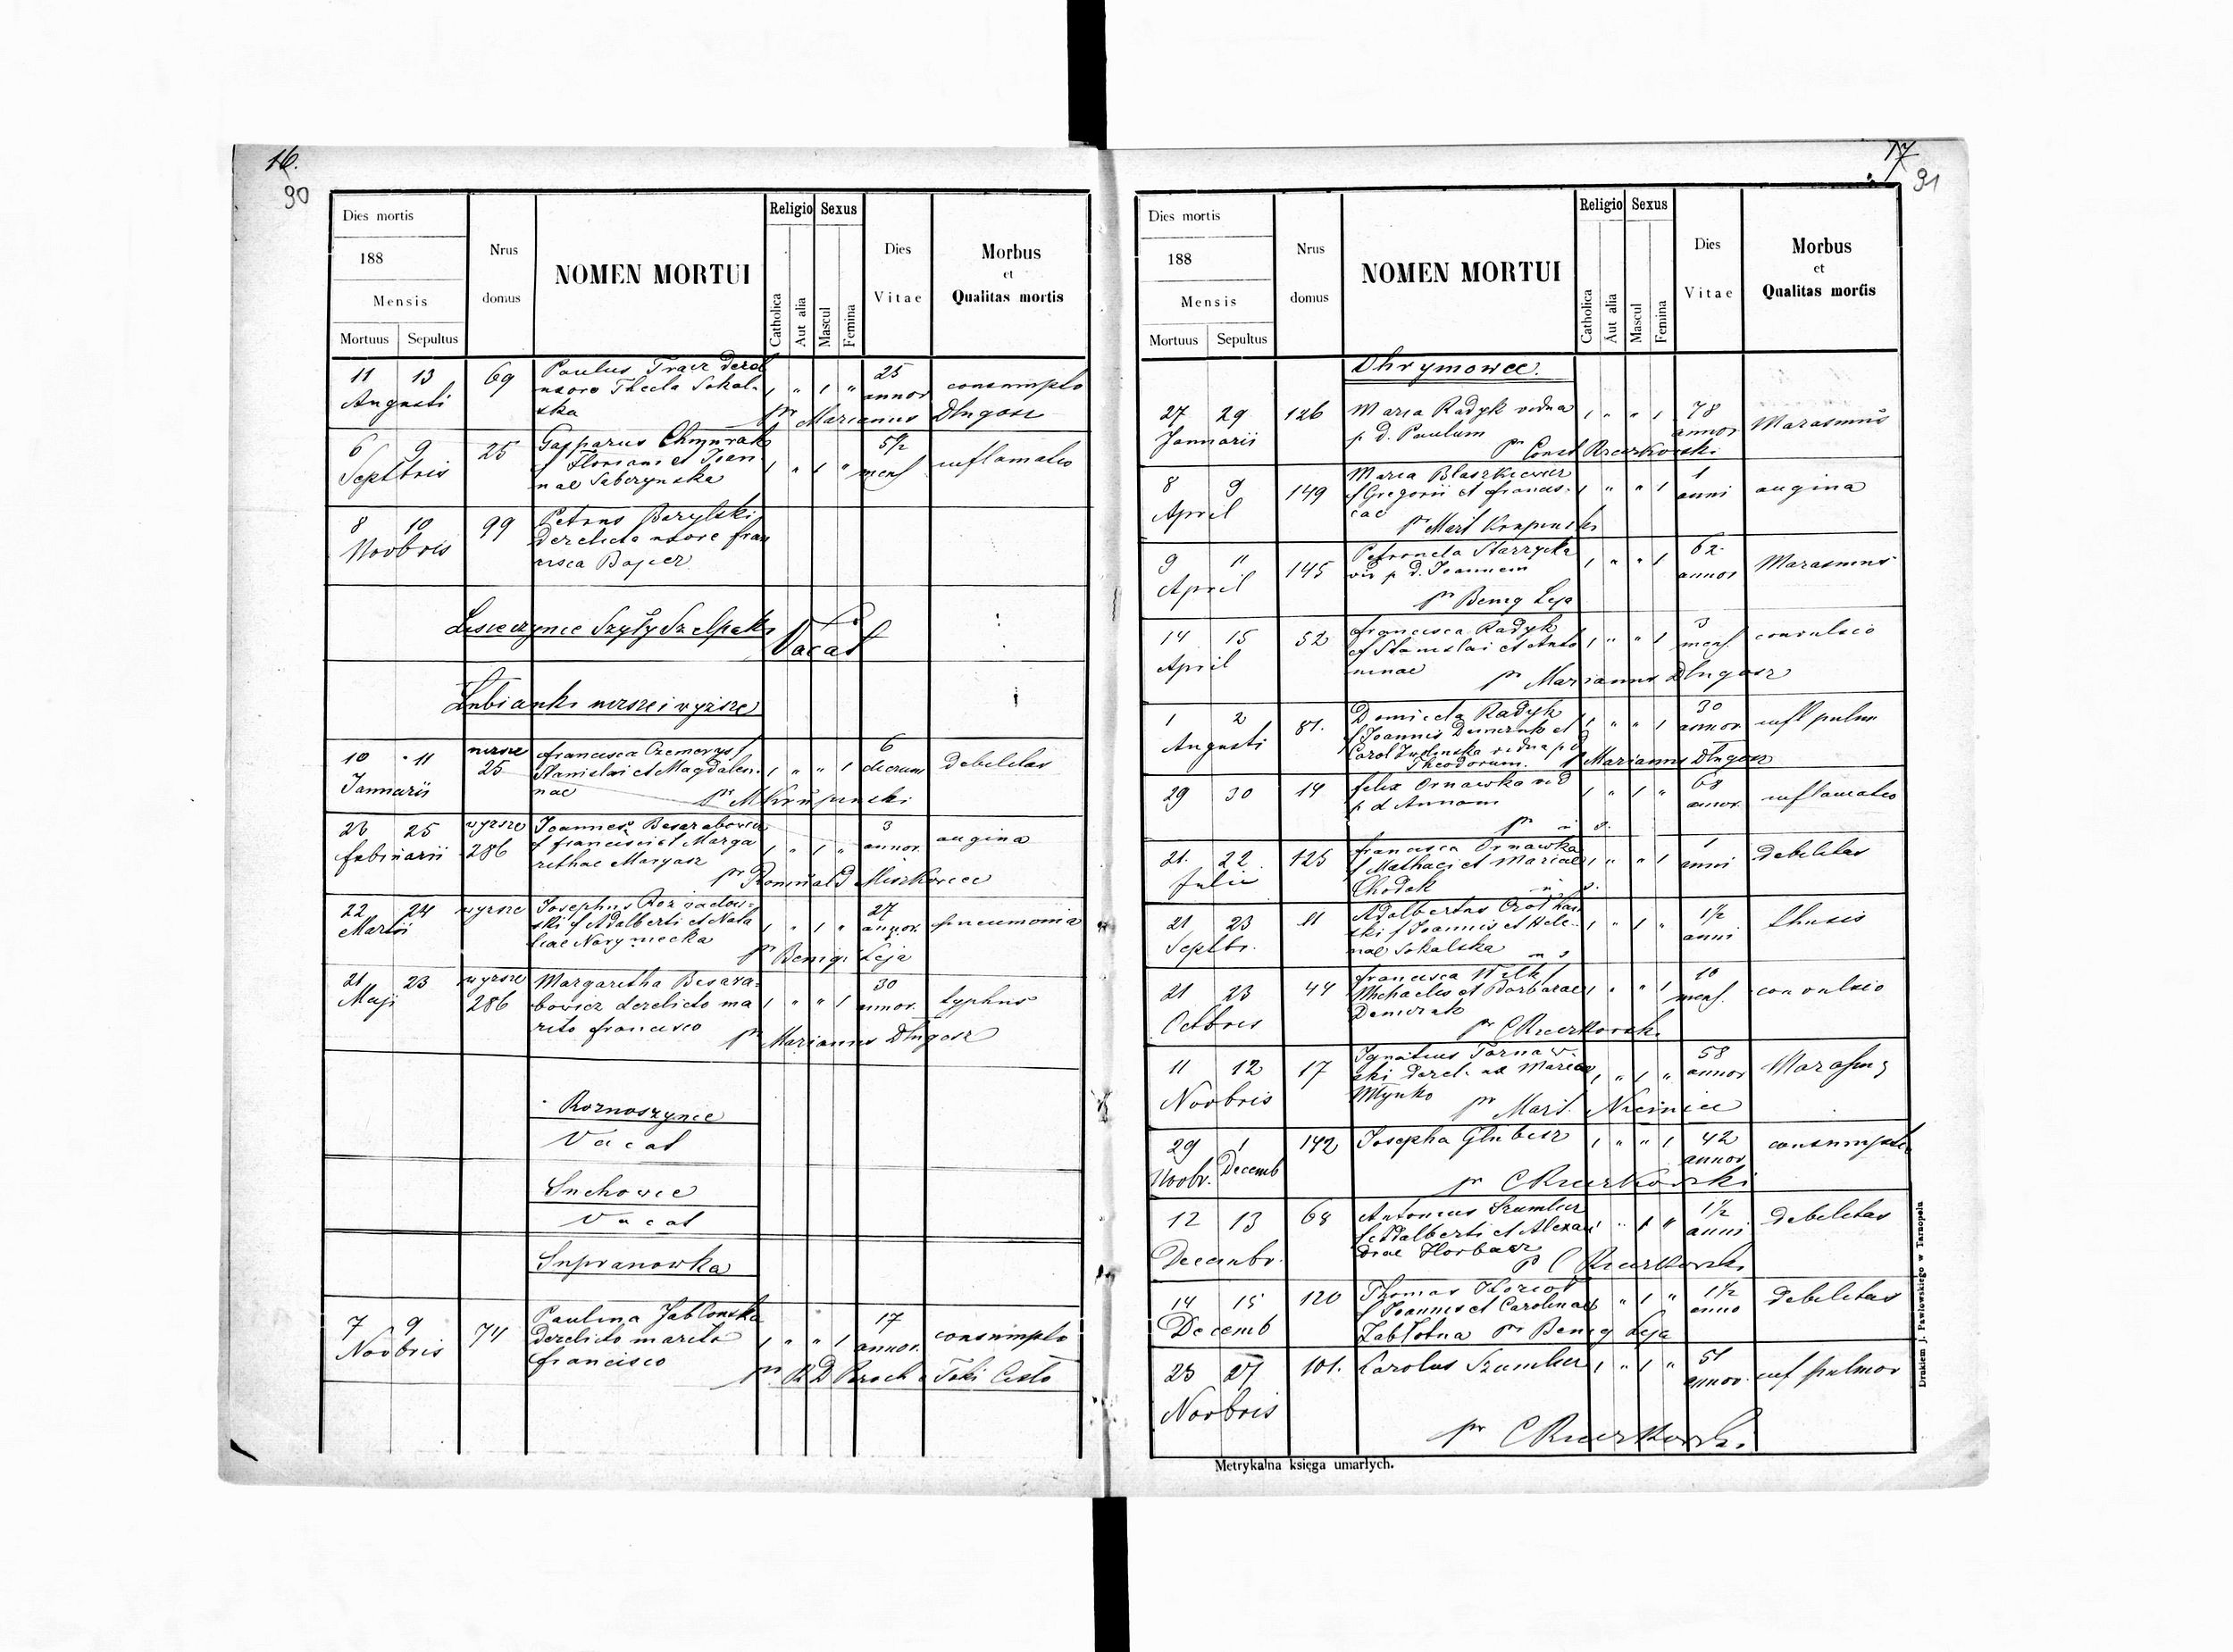 16.
90
Dies mortis
188
Mensis
Mortuus Sepultus
Nrus
domus
NOMEN MORTUI
Religio Sexus
Catholica
Aut alia
Mascul
Femina
Dies
Vitae
Morbus
et
Qualitas mortis
11 13 69 Paulus Tracz derel 25
Augusti uxore Thecla Sokal- 1 " 1 " annor consumptio
ska pr Marianus Dlugosz
6 9 25 Gasparus Chmurak 5 1/2
Septbris f Floriani et Joan 1 " 1 " mens inflamatio
nae
8 10 99 Petrus
Novbris derelicta uxore fran
cisca Bojier
Lisieczynce Szyły Szelpaki Vacat
Lubianki niższe i wyższe
10 11 niższe Francisca f 6
25 Stanislai et Magdalen- 1 " " 1 dierum debilitas
Januarii nae pr M Krupinski
23 25 wyższe Joannes Besarabowicz 3
Februarii 286 f francisci et Marga 1 " 1 " annor. angina
rethae Margasz pr Romuald Miszkowicz
22 24 wyższe Josephus 27
Martii ski f Adalberti et Nata 1 " 1 " annor. pneumonia
liae pr Benig. Leja
21 23 wyższe Margaretha Besara- 30
Maji 286 bowicz derelicto ma 1 " " 1 annor. typhus
rito francisco pr Marianus Dlugosz
Roznoszynce
Vacat
Suchowce
Vacat
Supranowka
7 9 74 Paulina Jablonska 17
Novbris derelicto marito 1 " " 1 annor. consumptio
francisco pr R D Paroch Toki
17
91
Dies mortis
188
Mensis
Mortuus Sepultus
Nrus
domus
NOMEN MORTUI
Religio Sexus
Catholica
Aut alia
Mascul
Femina
Dies
Vitae
Morbus
et
Qualitas mortis
Ohrymowce.
27 29 126 Maria Radyk vidua 1 " " 1 78 Marasmus
Januarii p d. Paulum annor
pr Const Rzeczkowski
8 9 149 Maria Blaszkiewicz 1
April f Gregorii et francis- 1 " " 1 anni angina
cae pr Mart Krupinski
9 11 145 Petronela Starzycka 62
April vid p d. Joannem 1 " " 1 annor Marasmus
pr Benig Leja
14 15 52 francisca Radyk 3
April f Stanislai et Anto 1 " " 1 mens. convulsio
ninae pr Marianus Dlugosz
1 2 87. Domicela Radyk 30
Augusti f Joannis et 1 " " 1 annor infl pulm
Carol vidua p d
Theodorum. p Marianus Dlugosz
29 30 14 felix Ornawka vid 1 " 1 " 68 inflamatio
p d Annam annor.
pr
21. 22 125 francisca Ornawka 1
Julii f Mathaei et Mariae 1 " " 1 anni debilitas
Chodak
21 23 11 Adalbertus 1 1/2
Septbr. ski f Joannis et Hele- 1 " 1 " anni thusis
nae Sokalska
21 23 44 francisca Wilk f 10
Octbris Michaelis et Barbarae 1 " " 1 mens. convulsio
pr C Rzeczkowski
11 12 17 Ignatius Tarnaw- 58
Novbris ski derel. ux Maria 1 " 1 " annor Marasmus
Młynko pr Mart.
29 1 142 Josepha Glubisz 1 " " 1 42 consumptio
Novbr. Decemb annor
pr C Rzeczkowski
12 13 68 Antonius Szumlicz 1 1/2
f Adalberti et Alexan 1 " 1 " anni debilitas
Decembr. drae Horbacz p C Rzeczkowski
14 15 120 Thomas 1 1/2
Decemb f Joannis et Carolinae 1 " 1 " anno debilitas
Zabłotna pr Benig Leja
25 27 101. Carolus Szumlicz 1 " 1 " 51 inf pulmor
Novbris annor.
pr C Rzeczkowski
Metrykalna księga umarłych.
Drukiem J. Pawłowskiego w Tarnopolu